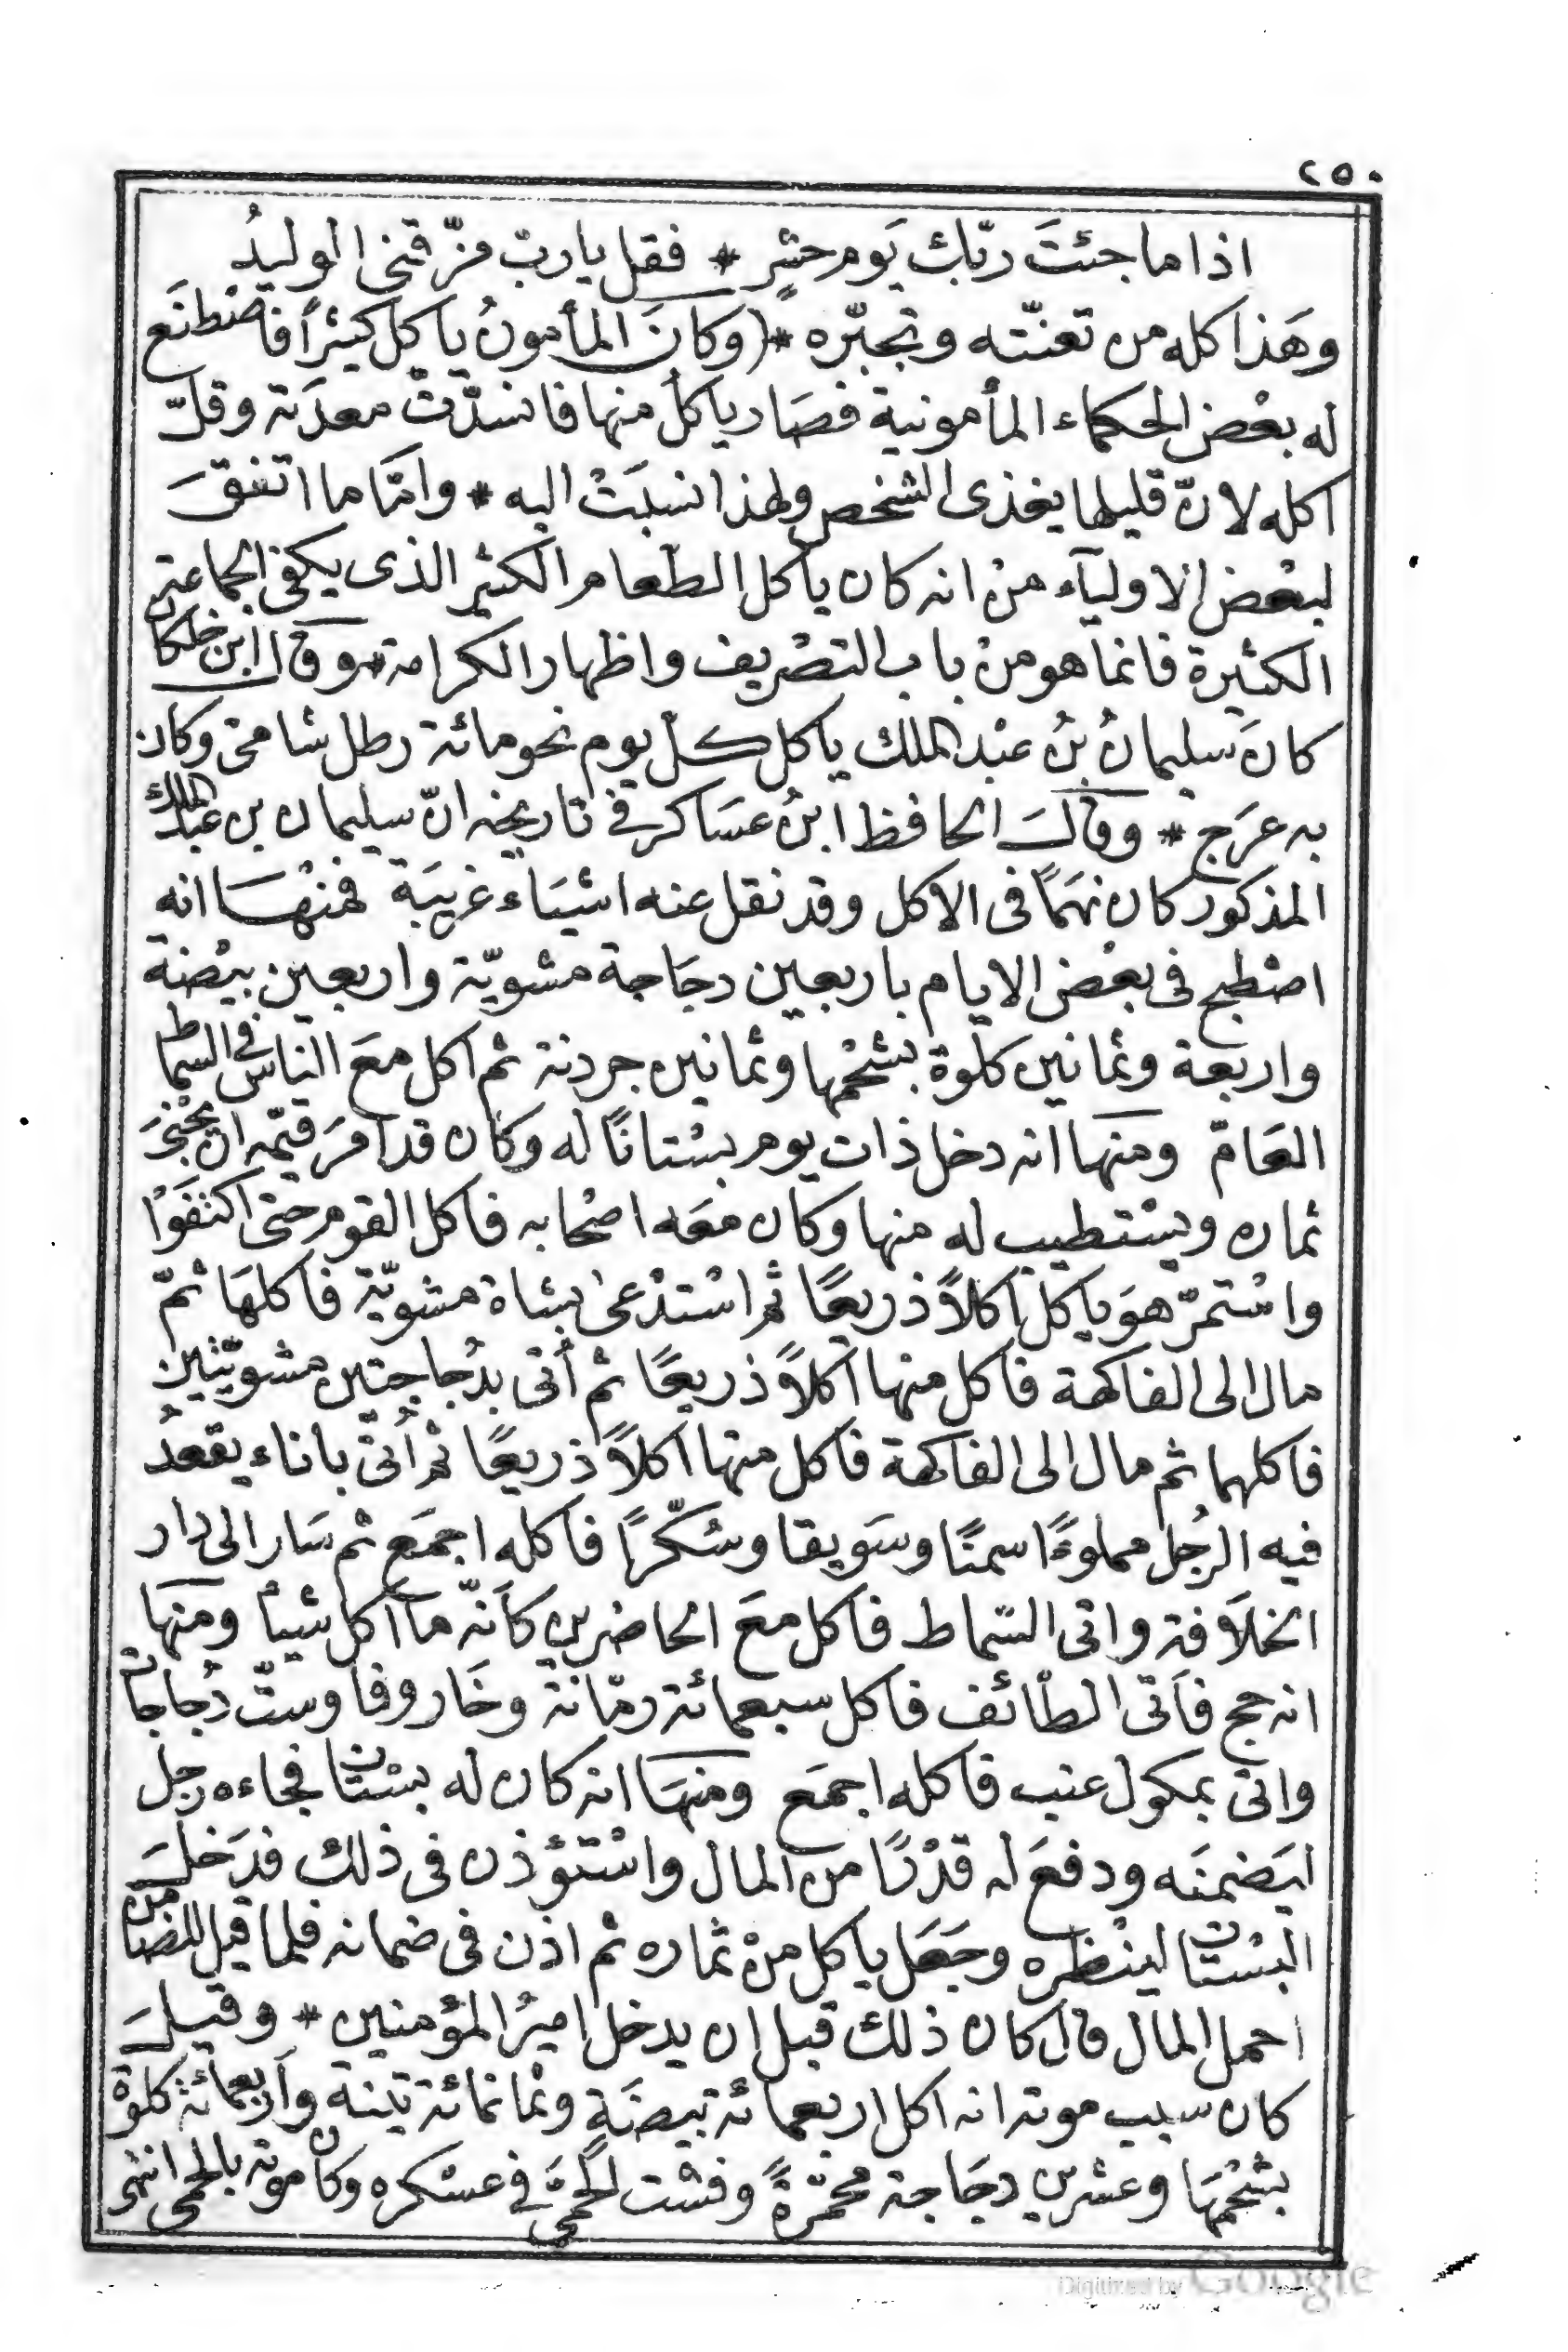 ٢٥٠
اذا ما جئتَ ربّك يَوم حشرٍ * فقل يا ربّ مزّقنى الوليدُ
وهَذا كله من تعنّته وتجبّره * (وكانَ المأمونُ ياكل كثيرًا فاصْطنَع
له بعْض الحكماء المأمونية فصَار ياكل منها فانسدّتْ معدَته وقلّ
اكله لانّ قليلها يغذى الشخص ولهذا نسبَتْ اليه * وامّا ما اتفقَ
لبعْض الاوليآء منْ انه كان ياكل الطّعام الكثير الذى يكفى الجماعة
الكثيرة فانما هو منْ باب التصْريف واظهار الكرامة * وقال ابن خلكان
كانَ سليمانُ بنُ عبْد الملك ياكل كلّ يوم نحو مائة رطل شامىّ وكان
به عرَج * وقالَ الحافظ ابنُ عسَاكر فى تاريخه انّ سليمان بن عبد الملك
المذكور كان نهمًا فى الاكل وقد نقل عنه اشيَاء غريبَة فمنْهَا انه
اصْطبح فى بعْض الايام باربعين دجَاجة مشويّة واربعين بيْضة
واربعة وثمانين كلوة بشحْمها وثمانين جردنة ثم اكل معَ الناس فى السماط
العَامّ ومنها انه دخل ذات يوم بسْتانًا له وكان قد امرَ قيّمه ان يجْنىَ
ثماره ويسْتطيب له منها وكان معَه اصْحابه فاكل القوم حتى اكتفَوْا
واسْتمرّ هوَ ياكل اكلاً ذريعًا ثم اسْتدْعى بشاة مشويّة فاكلهَا ثمّ
مال الى الفاكهة فاكل منها اكلاً ذريعًا ثم أتى بدُجاجتين مشويّتين
فاكلهما ثم مال الى الفاكهة فاكل منها اكلاً ذريعًا ثم أُتىَ باناء يقعدُ
فيه الرجُل مملوءًا سمنًا وسَويقا وسُكّرًا فاكله اجمَع ثم سَار الى دار
الخلاَفة واتى السّماط فاكل معَ الحاضرين كأنّه ما اكل شيأ ومنهَا
انه حج فأتى الطائف فاكل سبعمائة رمّانة وخَاروفا وستّ دُجاجات
واتى بمكول عنب فاكله اجمَع ومنهَا انه كان له بسْتان فجاءه رجل
ليَضمنَه ودفعَ له قدْرًا من المال واسْتؤذن فى ذلك فدَخلَ
البسْتان لينْظره وجَعَل ياكل منْ ثماره ثم اذن فى ضمانه فلما قيل للضامن
احمل المال قال كان ذلك قبل ان يدخل اميرُ المؤمنين * وقيلَ
كان سبب موته انه اكل اربعمائة بيضَة وثمانمائة تينة وأربعمائة كلوة
بشحْمهَا وعشرين دجَاجة محمّرةً وفشت الحمّىَ فى عسْكره وكان موته بالحمى انتهى
Digitized by Google